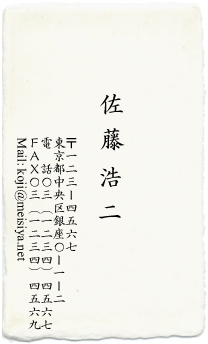 佐藤浩二
〒一二三ー四五六七
東京都中央区銀座〇ー一ー二
電話〇三(一二三四)四五六七
FAX〇三(一二三四)四五六九
Mail: koji@meisiya.net